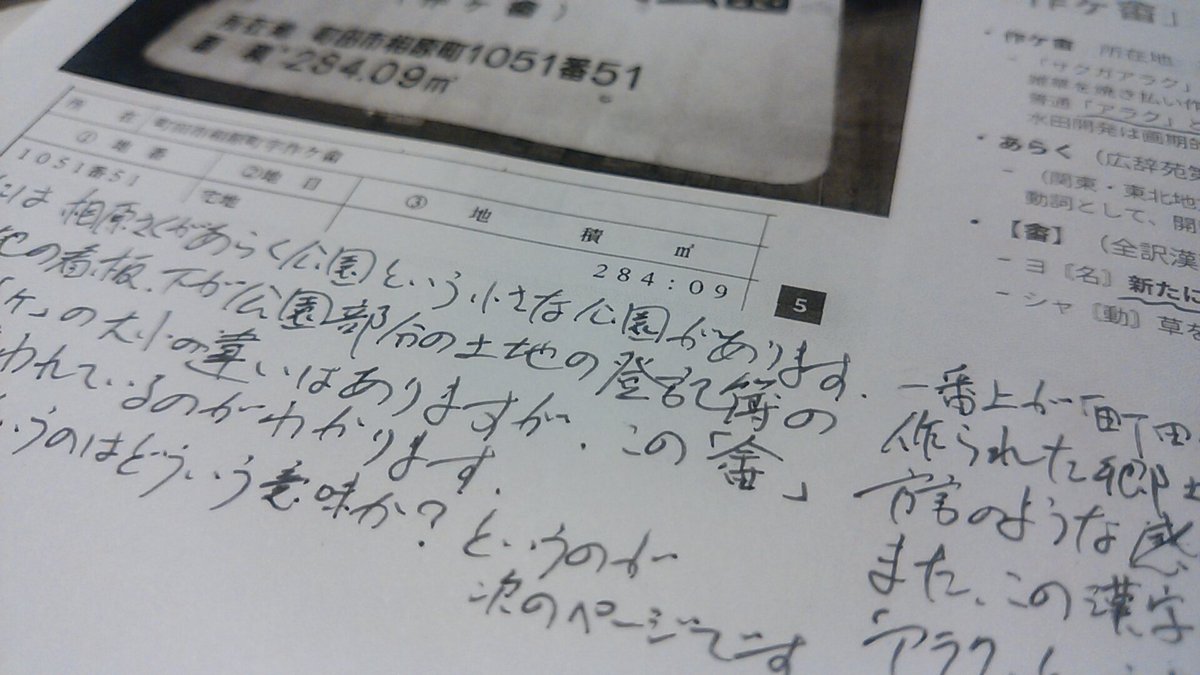 (作ケ畬)
所在地 町田市相原町1051番51
面積 284.09㎡
所 名 町田市相原町字作ケ畬
① 地 番 ②地 目 ③ 地 積 ㎡
1051番51 宅地 284:09
5
には 相原さくがあらく公園という小さな公園があります.
の看板.下が公園部分の土地の登記簿の
「ケ」の大小の違いはありますが、この「畬」
われているのがわかります.
いうのはどういう意味か? というのが
次のページです
作ケ畬」
・作ケ畬 所在地
- 「サクガアラク」
雑草を焼き払い作
普通「アラク」と
水田開発は画期的
・あらく (広辞苑第
- (関東・東北地
動詞として、開
・【畬】 (全訳漢
- ヨ〔名〕新たに
- シャ〔動〕草を
一番上が「町田
作られた郷土
方言のような感
また、この漢字
「アラク